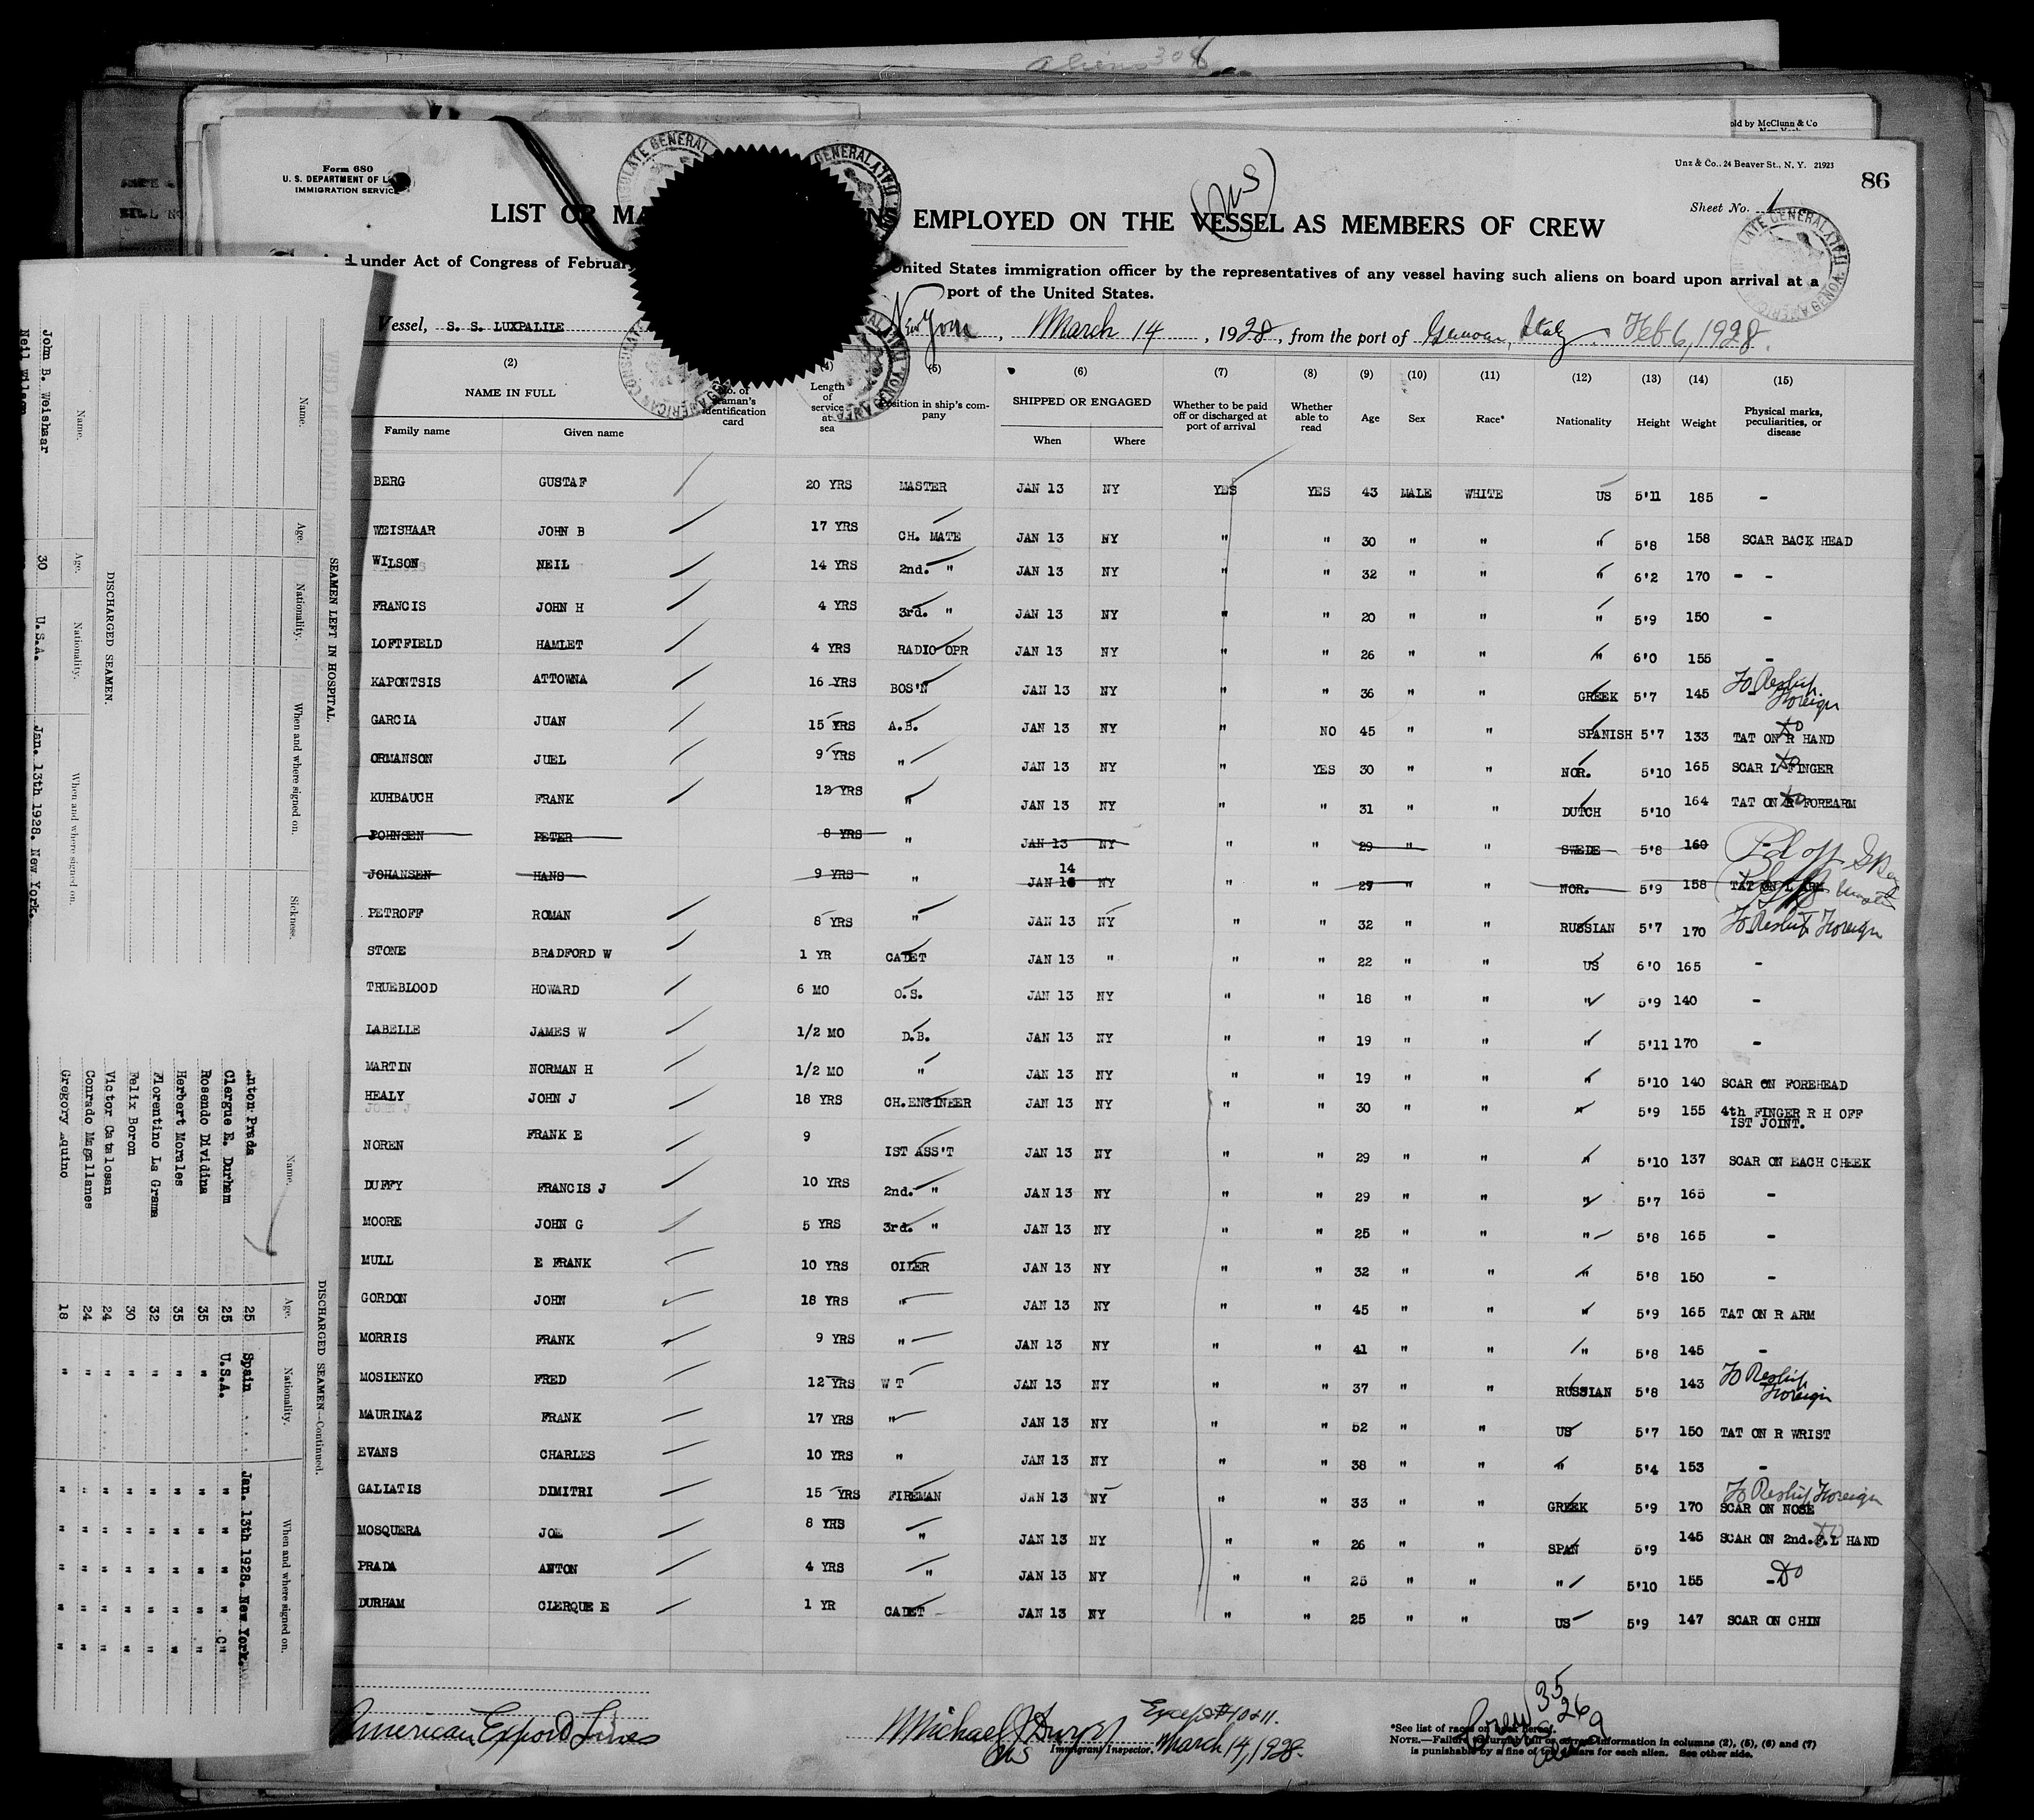 Aliens 30
old by McClunn & Co
Form 680
U. S. DEPARTMENT OF
IMMIGRATION SERVICE
Unz & Co., 24 Beaver St., N. Y. 21923
86
Sheet No. 1
LIST OR EMPLOYED ON THE VESSEL AS MEMBERS OF CREW
under Act of Congress of February United States immigration officer by the representatives of any vessel having such aliens on board upon arrival at a
port of the United States.
Vessel, S. S. LUXPALILE New York, March 14, 1928, from the port of Genoa, Italy. Feb 6, 1928.
(2) (5) (6) (7) (8) (9) (10) (11) (12) (13) (14) (15)
NAME IN FULL Length of service at sea Position in ship's company SHIPPED OR ENGAGED Whether to be paid off or discharged at port of arrival Whether able to read Age Sex Race* Nationality Height Weight Physical marks, peculiarities, or disease
Family name Given name identification card When Where
BERG GUSTAF 20 YRS MASTER JAN 13 NY YES YES 43 MALE WHITE US 5'11 185 -
WEISHAAR JOHN B 17 YRS CH. MATE JAN 13 NY " " 30 " " " 5'8 158 SCAR BACK HEAD
WILSON NEIL 14 YRS 2nd. " JAN 13 NY " " 32 " " " 6'2 170 - -
FRANCIS JOHN H 4 YRS 3rd. " JAN 13 NY " " 20 " " " 5'9 150 -
LOFTFIELD HAMLET 4 YRS RADIO OPR JAN 13 NY " " 26 " " " 6'0 155 -
KAPONTSIS ATTOWNA 16 YRS BOS'N JAN 13 NY " " 36 " " GREEK 5'7 145 To Reship Foreign
GARCIA JUAN 15 YRS A.B. JAN 13 NY " NO 45 " " SPANISH 5'7 133 TAT ON R HAND Do
ORMANSON JUEL 9 YRS " JAN 13 NY " YES 30 " " NOR. 5'10 165 SCAR L FINGER Do
KUHBAUCH FRANK 12 YRS " JAN 13 NY " " 31 " " DUTCH 5'10 164 TAT ON R FOREARM Do
JOHNSEN PETER 8 YRS " JAN 13 NY " " 29 " " SWEDE 5'8 160 Pd off
JOHANSEN HANS 9 YRS " JAN 16 14 NY " " 27 " " NOR. 5'9 158 TAT ON L ARM
PETROFF ROMAN 8 YRS " JAN 13 NY " " 32 " " RUSSIAN 5'7 170 To Reship Foreign
STONE BRADFORD W 1 YR CADET JAN 13 " " " 22 " " US 6'0 165 -
TRUEBLOOD HOWARD 6 MO O.S. JAN 13 NY " " 18 " " " 5'9 140 -
LABELLE JAMES W 1/2 MO D.B. JAN 13 NY " " 19 " " " 5'11 170 -
MARTIN NORMAN H 1/2 MO " JAN 13 NY " " 19 " " " 5'10 140 SCAR ON FOREHEAD
HEALY JOHN J 18 YRS CH.ENGINEER JAN 13 NY " " 30 " " " 5'9 155 4th FINGER R H OFF
IST JOINT.
NOREN FRANK E 9 IST ASS'T JAN 13 NY " " 29 " " " 5'10 137 SCAR ON EACH CHEEK
DUFFY FRANCIS J 10 YRS 2nd. " JAN 13 NY " " 29 " " " 5'7 165 -
MOORE JOHN G 5 YRS 3rd. " JAN 13 NY " " 25 " " " 5'8 165 -
MULL E FRANK 10 YRS OILER JAN 13 NY " " 32 " " " 5'8 150 -
GORDON JOHN 18 YRS " JAN 13 NY " " 45 " " " 5'9 165 TAT ON R ARM
MORRIS FRANK 9 YRS " JAN 13 NY " " 41 " " " 5'8 145 -
MOSIENKO FRED 12 YRS W T JAN 13 NY " " 37 " " RUSSIAN 5'8 143 To Reship Foreign
MAURINAZ FRANK 17 YRS " JAN 13 NY " " 52 " " US 5'7 150 TAT ON R WRIST
EVANS CHARLES 10 YRS " JAN 13 NY " " 38 " " " 5'4 153 -
GALIATIS DIMITRI 15 YRS FIREMAN JAN 13 NY " " 33 " " GREEK 5'9 170 To Reship Foreign SCAR ON NOSE
MOSQUERA JOE 8 YRS " JAN 13 NY " " 26 " " SPAN 5'9 145 SCAR ON 2nd.F.L HAND
PRADA ANTON 4 YRS " JAN 13 NY " " 25 " " " 5'10 155 - Do
DURHAM CLERQUE E 1 YR CADET JAN 13 NY " " 25 " " US 5'9 147 SCAR ON CHIN
American Export Lines
Except #10 & 11.
Immigrant Inspector. March 14, 1928.
Crew 35
26
9
*See list of races on back hereof.
NOTE.—Failure to furnish full or correct information in columns (2), (5), (6) and (7)
is punishable by a fine of ten dollars for each alien. See other side.
SEAMEN LEFT IN HOSPITAL.
Name. Age. Nationality. When and where signed on. Sickness.
DISCHARGED SEAMEN.
Name. Age. Nationality. When and where signed on.
John B. Weishaar 30 U.S.A. Jan. 13th 1928. New York.
Neil Wilson
DISCHARGED SEAMEN—Continued.
Name. Age. Nationality. When and where signed on.
Anton Prada 25 Spain Jan. 13th 1928. New York.
Clergue E. Durham 25 U.S.A. " " " "
Rosendo Dividina 35 " " " " " "
Herbert Morales 35 " " " " " "
Florentino La Grama 32 " " " " " "
Felix Boron 30 " " " " " "
Victor Catalosan 24 " " " " " "
Conrado Magallanes 24 " " " " " "
Gregory Aquino 18 " " " " " "